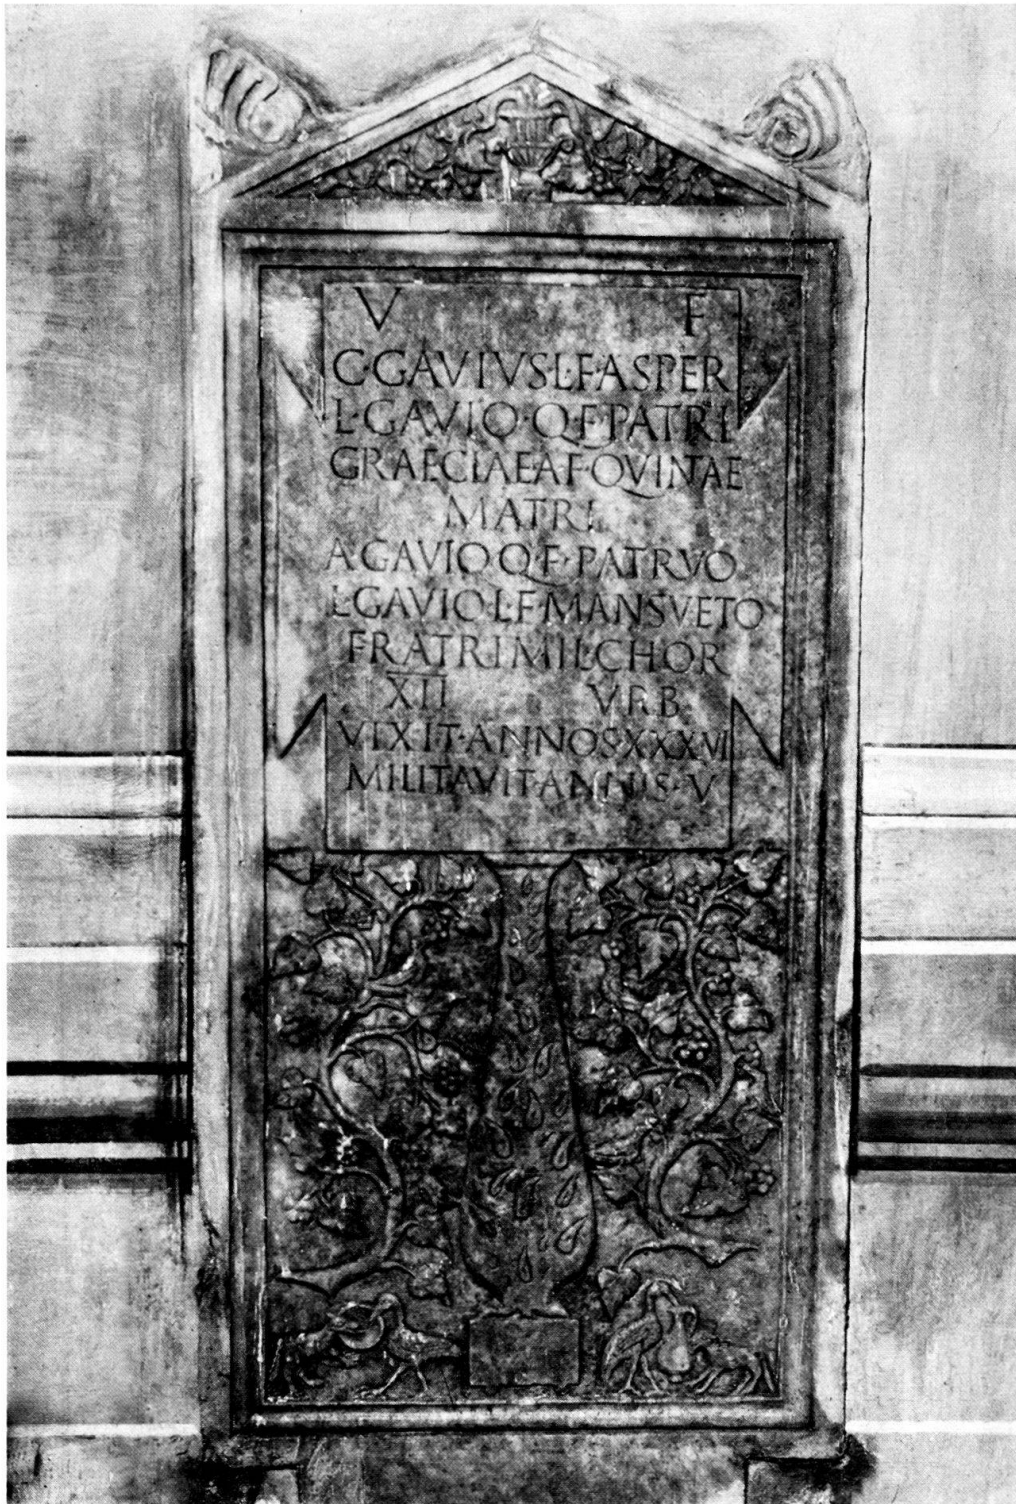 V F
C·GAVIVS·L·F·ASPER
L·GAVIO·Q·F·PATRI
GRAECIAE A·F·QVINAE
MATRI
A GAVIO Q·F·PATRVO
L·GAVIO·L·F·MANSVETO
FRATRI MIL CHOR
XII VRB
VIX·IT·ANNOS XXXVI
MILITAVIT ANNIS·V